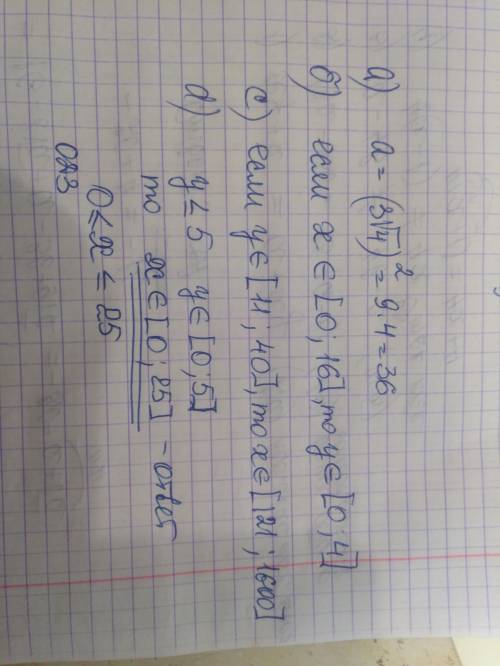 а) a = (3√4)² = 9·4 = 36
б) если x ∈ [0; 16], то y ∈ [0; 4]
c) если y ∈ [11; 40], то x ∈ [121; 1600]
d) y ≤ 5 y ∈ [0; 5]
то x ∈ [0; 25] - ответ
0 ≤ x ≤ 25
одз